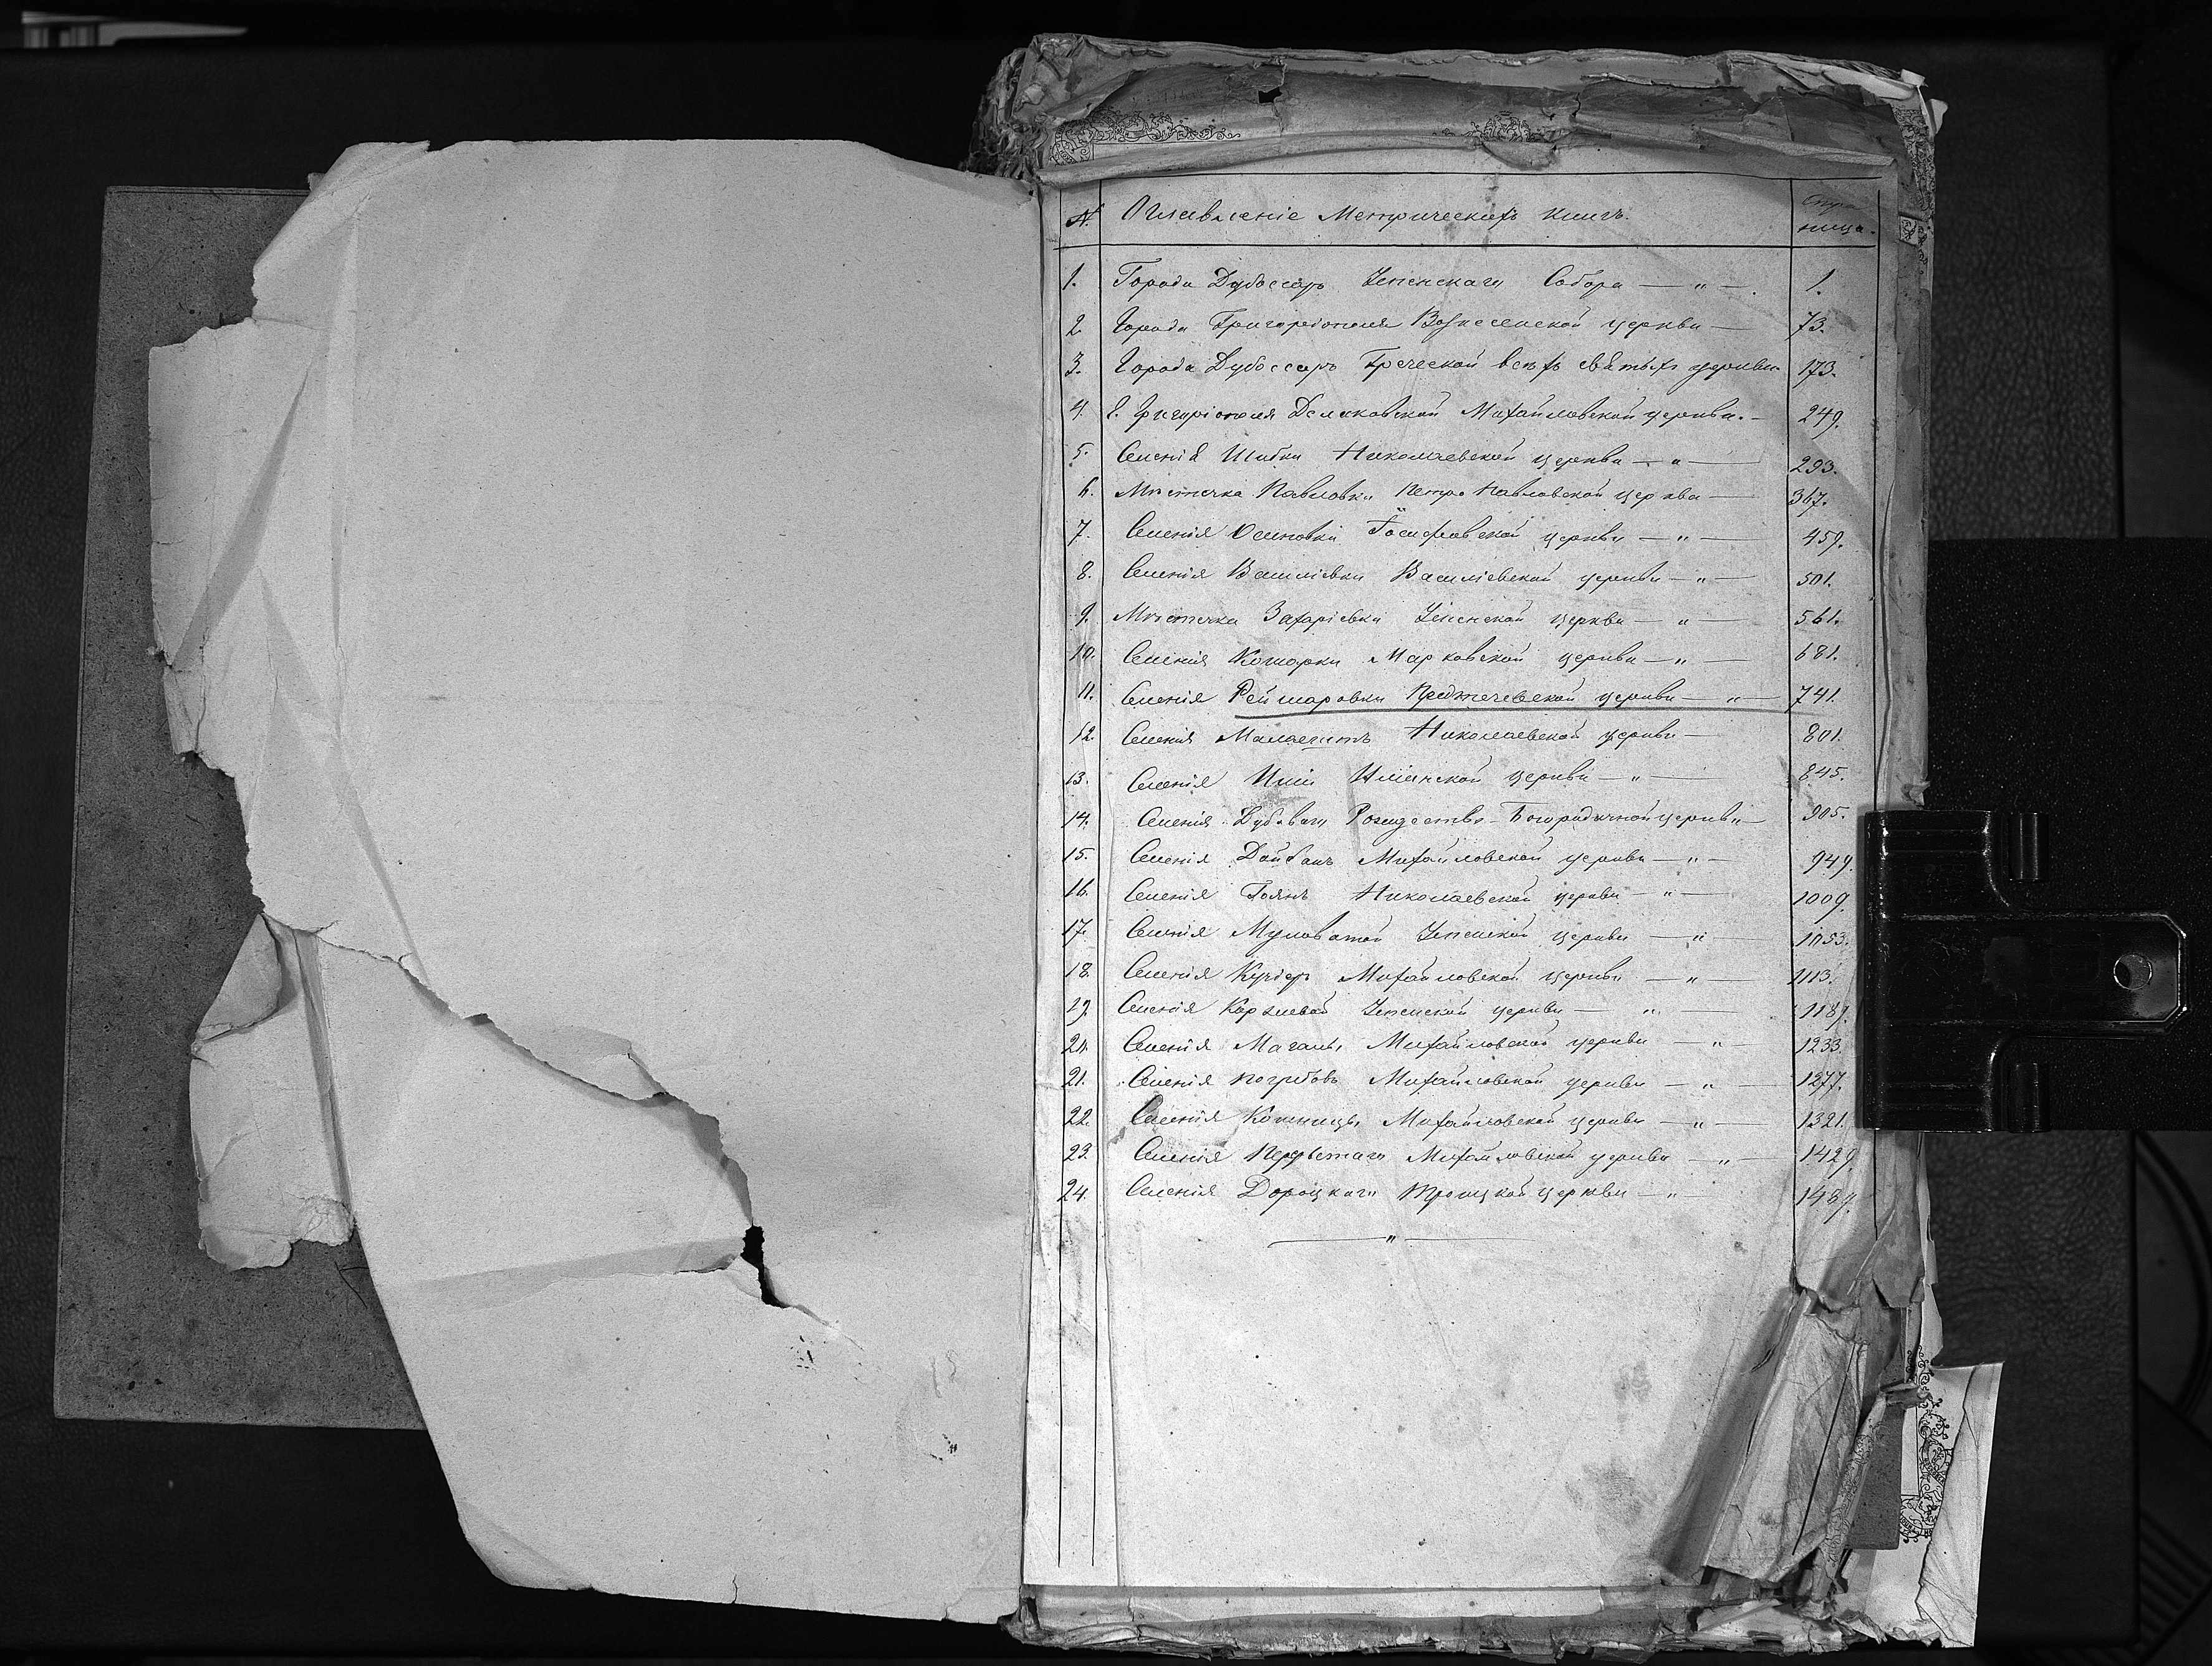 № Оглавленіе Метрическихъ книгъ. Стра
ница.
1. Города Дубоссаръ Успенскаго Собора — " — 1.
2. Города Григоріополя Вознесенской церкви — 73.
3. Города Дубоссаръ Греческой всѣхъ святыхъ церкви 173.
4. г. Григоріополя Делаковской Михайловской церкви. — 249.
5. Селенія Шибки Николаевской церкви — " — 293.
6. Мѣстечка Павловки Петро Павловской церкви — 367.
7. Селенія Осиповки Іосифовской церкви — " — 459.
8. Селенія Василіевки Василіевской церкви — " — 501.
9. Мѣстечка Захаріевки Успенской церкви — " — 561.
10. Селенія Кошарки Марковской церкви — " — 681.
11. Селенія Реймаровки Предтечевской церкви — " — 741.
12. Селенія Малаештъ Николаевской церкви — 801.
13. Селенія Иліи Иліинской церкви — " — 845.
14. Селенія Дубоваго Рождество-Богородичной церкви — 905.
15. Селенія Дойбанъ Михайловской церкви — " — 949.
16. Селенія Гоянъ Николаевской церкви — " — 1009.
17. Селенія Моловатой Успенской церкви — " — 1053.
18. Селенія Кучіеръ Михайловской церкви — " — 1113.
19. Селенія Коржевой Успенской церкви — " — 1189.
20. Селенія Магалы Михайловской церкви — " — 1233.
21. Селенія Погребовъ Михайловской церкви — " — 1277.
22. Селенія Кошницы Михайловской церкви — " — 1321.
23. Селенія Перерытаго Михайловской церкви — " — 1429.
24. Селенія Дороцкаго Троицкой церкви — " 1489.
— " —